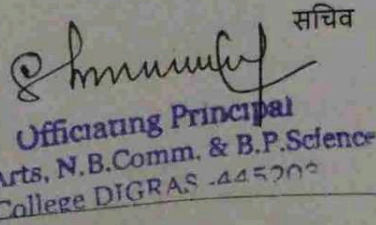 सचिव
Officiating Principal
Arts, N.B.Comm. & B.P.Science
College DIGRAS -445203